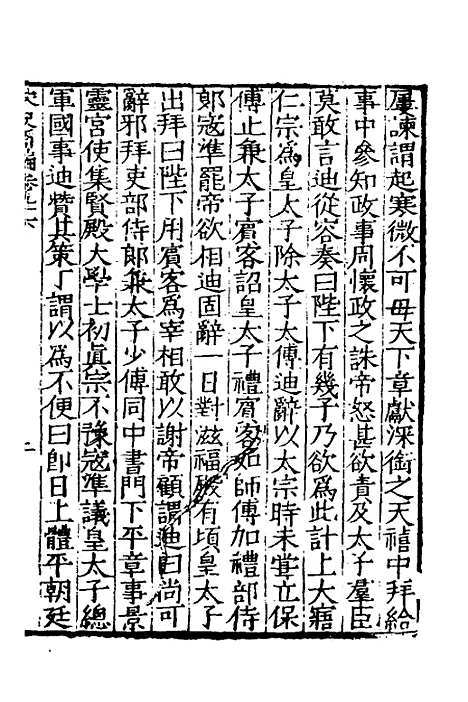 屢諫謂起寒微不可母天下章獻深銜之天禧中拜給
事中參知政事周懷政之誅帝怒甚欲責及太子羣臣
莫敢言迪從容奏曰陛下有幾子乃欲爲此計上大寤
仁宗爲皇太子除太子太傅迪辭以太宗時未甞立保
傅止兼太子賔客詔皇太子禮賔客如師傅加禮部侍
郎寇準罷帝欲相迪固辭一日對滋福殿有頃皇太子
出拜曰陛下用賔客爲宰相敢以謝帝顧謂迪曰尚可
辭邪拜吏部侍郎兼太子少傅同中書門下平章事景
靈宮使集賢殿大學士初眞宗不豫寇準議皇太子總
軍國事迪贊其策丁謂以爲不便曰即日上體平朝廷